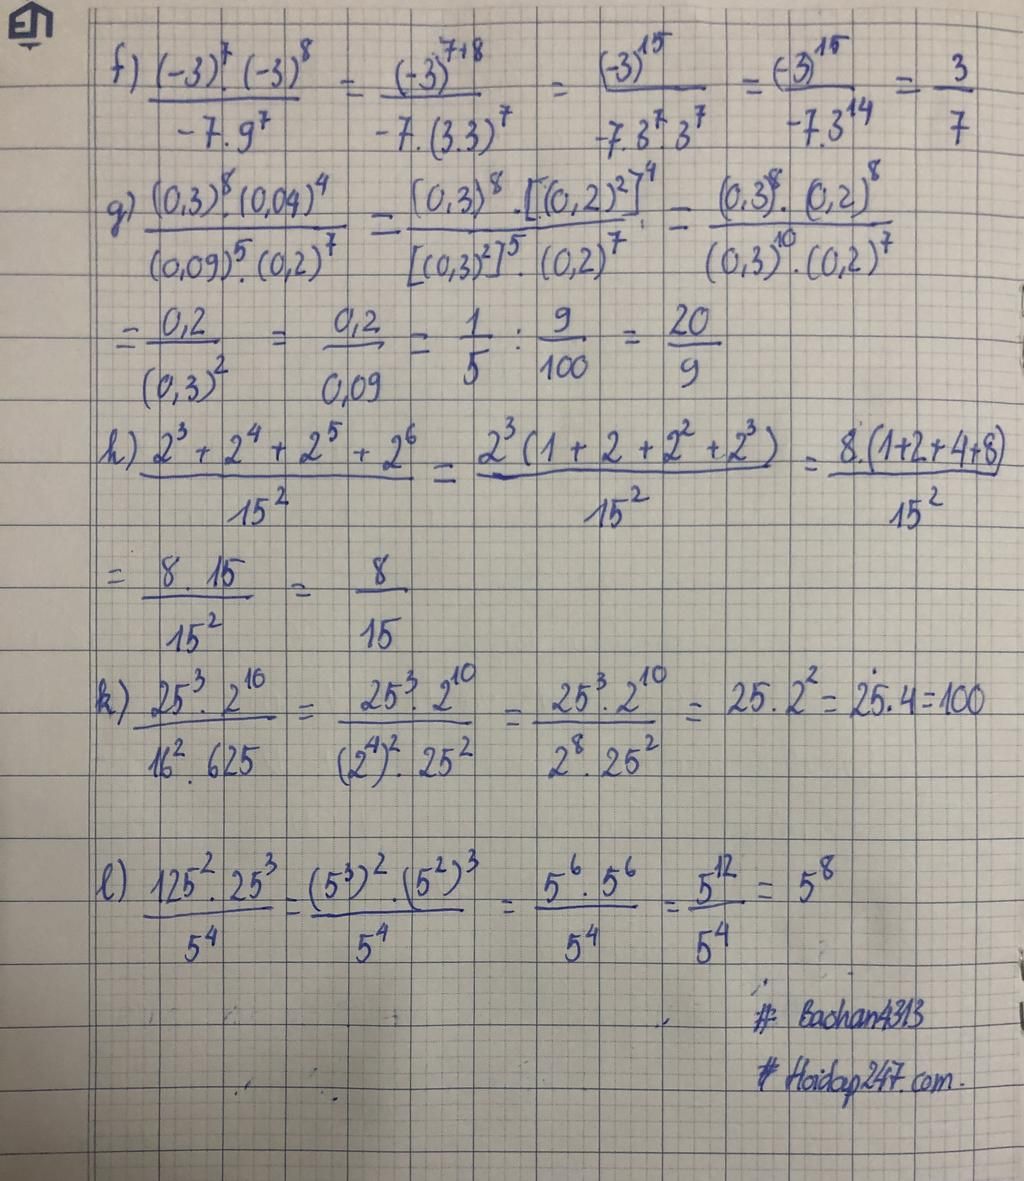 f) \frac{(-3)^7 . (-3)^8}{-7 . 9^7} = \frac{(-3)^{7+8}}{-7 . (3.3)^7} = \frac{(-3)^{15}}{-7 . 3^7 . 3^7} = \frac{(-3)^{15}}{-7 . 3^{14}} = \frac{3}{7}
g) \frac{(0,3)^8 . (0,04)^4}{(0,09)^5 . (0,2)^7} = \frac{(0,3)^8 . [(0,2)^2]^4}{[(0,3)^2]^5 . (0,2)^7} = \frac{(0,3)^8 . (0,2)^8}{(0,3)^{10} . (0,2)^7}
= \frac{0,2}{(0,3)^2} = \frac{0,2}{0,09} = \frac{1}{5} : \frac{9}{100} = \frac{20}{9}
h) \frac{2^3 + 2^4 + 2^5 + 2^6}{15^2} = \frac{2^3 (1 + 2 + 2^2 + 2^3)}{15^2} = \frac{8 . (1+2+4+8)}{15^2}
= \frac{8 . 15}{15^2} = \frac{8}{15}
k) \frac{25^3 . 2^{10}}{16^2 . 625} = \frac{25^3 . 2^{10}}{(2^4)^2 . 25^2} = \frac{25^3 . 2^{10}}{2^8 . 25^2} = 25 . 2^2 = 25 . 4 = 100
l) \frac{125^2 . 25^3}{5^4} = \frac{(5^3)^2 . (5^2)^3}{5^4} = \frac{5^6 . 5^6}{5^4} = \frac{5^{12}}{5^4} = 5^8
# Baohan4313
# Hoidap247.com.